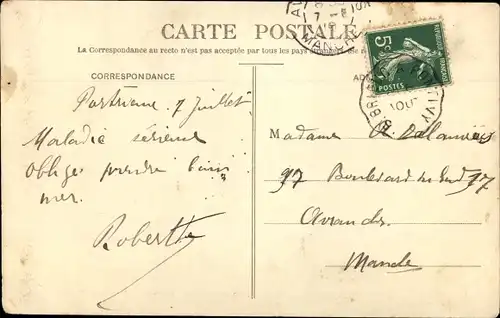 CARTE POSTALE
La Correspondance au recto n'est pas acceptée par tous les pays étrangers
CORRESPONDANCE
5c
POSTES
7 Juillet
Maladie sérieuse
oblige prendre bains
mer.
Roberte
Madame
97 Boulevard du Sud 97
Avranches
Manche